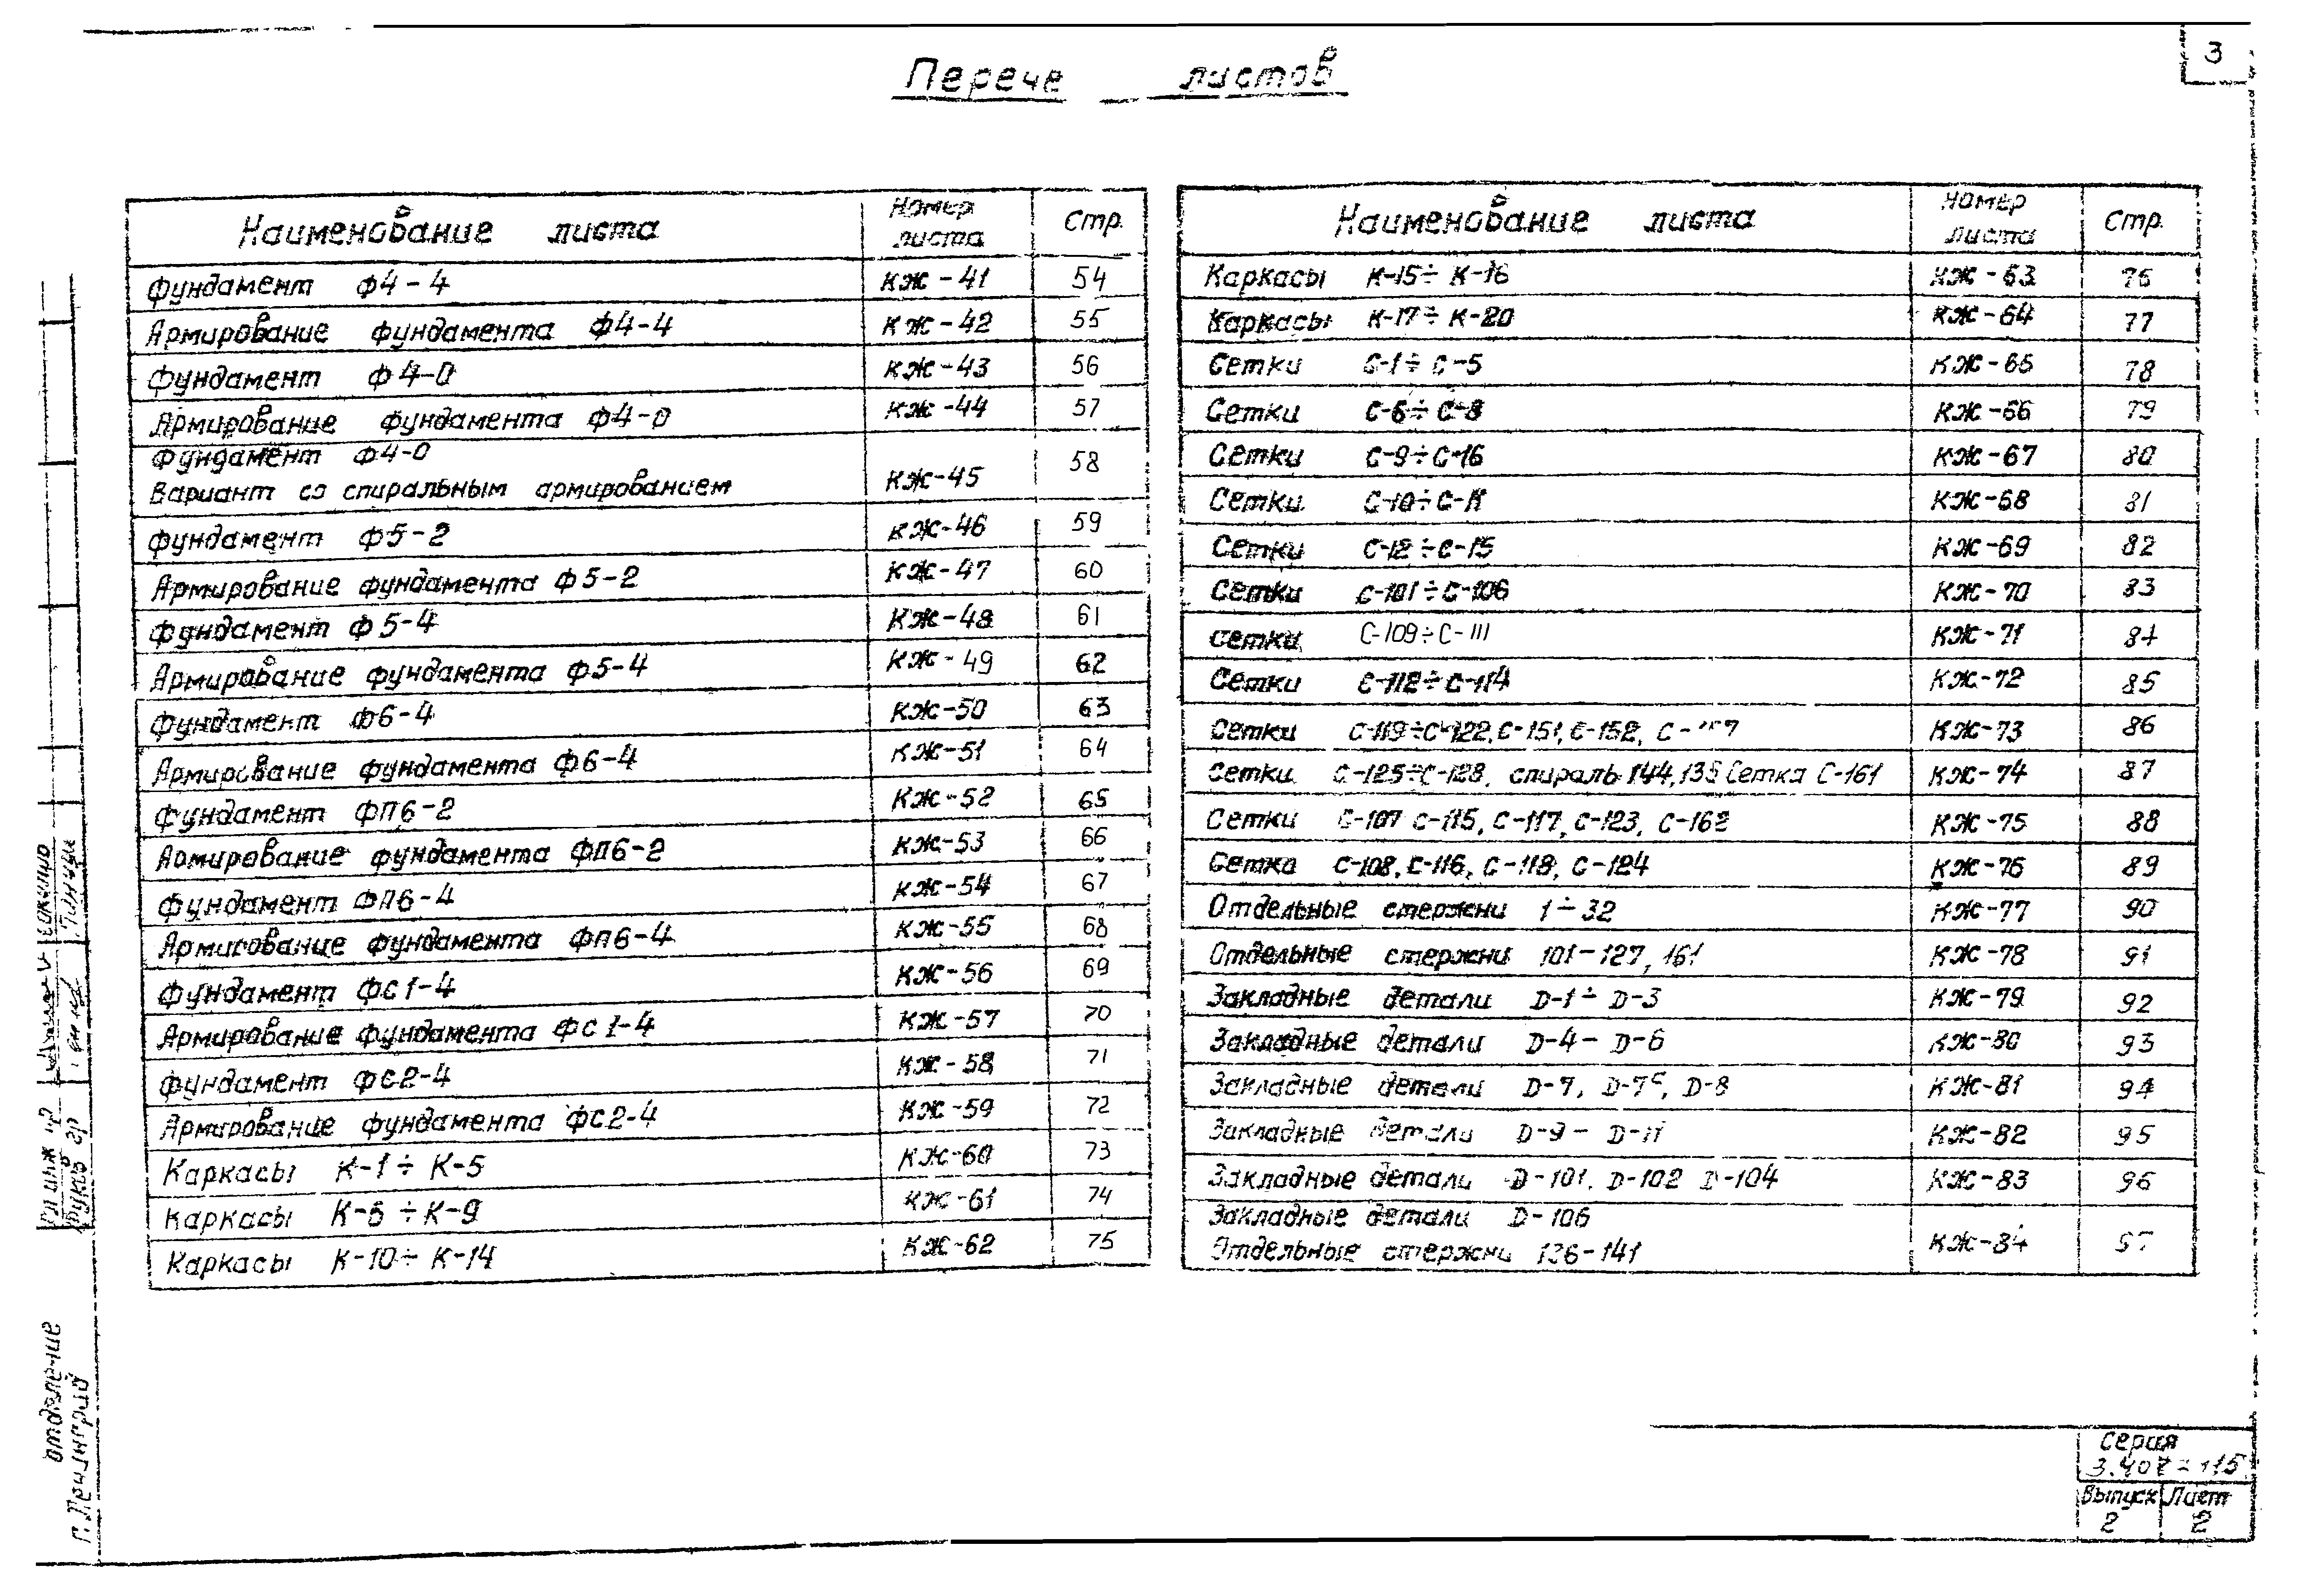 3
Перече листов
Наименование листа Номер листа Стр.
Фундамент Ф4-4 КЖ-41 54
Армирование фундамента Ф4-4 КЖ-42 55
Фундамент Ф4-0 КЖ-43 56
Армирование фундамента Ф4-0 КЖ-44 57
Фундамент Ф4-0
Вариант со спиральным армированием КЖ-45 58
Фундамент Ф5-2 КЖ-46 59
Армирование фундамента Ф5-2 КЖ-47 60
Фундамент Ф5-4 КЖ-48 61
Армирование фундамента Ф5-4 КЖ-49 62
Фундамент Ф6-4 КЖ-50 63
Армирование фундамента Ф6-4 КЖ-51 64
Фундамент ФП6-2 КЖ-52 65
Армирование фундамента ФП6-2 КЖ-53 66
Фундамент ФП6-4 КЖ-54 67
Армирование фундамента ФП6-4 КЖ-55 68
Фундамент ФС1-4 КЖ-56 69
Армирование фундамента ФС1-4 КЖ-57 70
Фундамент ФС2-4 КЖ-58 71
Армирование фундамента ФС2-4 КЖ-59 72
Каркасы К-1÷К-5 КЖ-60 73
Каркасы К-6÷К-9 КЖ-61 74
Каркасы К-10÷К-14 КЖ-62 75
Наименование листа Номер листа Стр.
Каркасы К-15÷К-16 КЖ-63 76
Каркасы К-17÷К-20 КЖ-64 77
Сетки С-1÷С-5 КЖ-65 78
Сетки С-6÷С-8 КЖ-66 79
Сетки С-9÷С-16 КЖ-67 80
Сетки С-10÷С-11 КЖ-68 81
Сетки С-12÷С-15 КЖ-69 82
Сетки С-101÷С-106 КЖ-70 83
Сетки С-109÷С-111 КЖ-71 84
Сетки С-112÷С-114 КЖ-72 85
Сетки С-119÷С-122, С-151, С-152, КЖ-73 86
Сетки С-125÷С-128, спираль 144, 135 Сетка С-161 КЖ-74 87
Сетки С-107 С-115, С-117, С-123, С-162 КЖ-75 88
Сетка С-108, С-116, С-118, С-124 КЖ-76 89
Отдельные стержни 1÷32 КЖ-77 90
Отдельные стержни 101-127, 161 КЖ-78 91
Закладные детали D-1÷D-3 КЖ-79 92
Закладные детали D-4-D-6 КЖ-80 93
Закладные детали D-7, D-7ᶜ, D-8 КЖ-81 94
Закладные детали D-9-D-11 КЖ-82 95
Закладные детали D-101, D-102 D-104 КЖ-83 96
Закладные детали D-106
Отдельные стержни 136-141 КЖ-84 97
отделение
Серия
3.407-115
Выпуск Лист
2 2